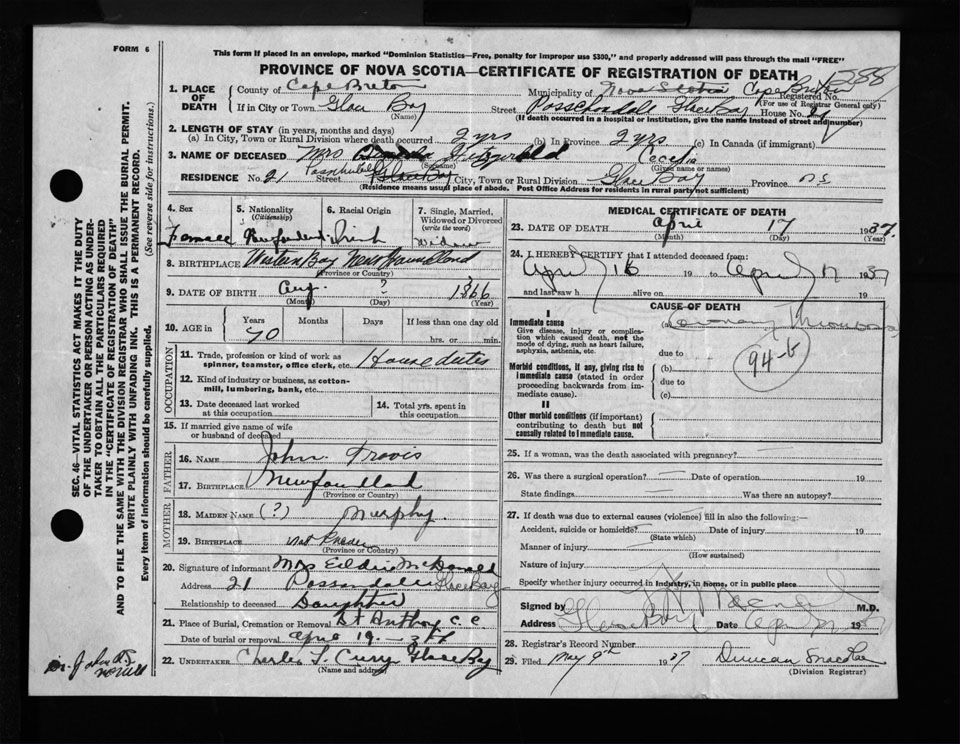 FORM 6
This form if placed in an envelope, marked "Dominion Statistics—Free, penalty for improper use $300," and properly addressed will pass through the mail "FREE"
PROVINCE OF NOVA SCOTIA—CERTIFICATE OF REGISTRATION OF DEATH
1. PLACE OF DEATH
County of Cape Breton
Municipality of Nova Scotia Cape Breton
Registered No. 1288
(For use of Registrar General only)
If in City or Town Glace Bay
(Name)
Street Glace Bay House No. 21
(If death occurred in a hospital or institution, give the name instead of street and number)
2. LENGTH OF STAY (in years, months and days)
(a) In City, Town or Rural Division where death occurred 2 yrs (b) In Province 2 yrs (c) In Canada (if immigrant)
3. NAME OF DECEASED Mrs Fitzgerald Cecelia
(Surname) (Given name or names)
RESIDENCE No. 21 Street Glace Bay City, Town or Rural Division Glace Bay Province N.S.
(Residence means usual place of abode. Post Office Address for residents in rural parts not sufficient)
4. Sex
Female
5. Nationality
(Citizenship)
6. Racial Origin
Irish
7. Single, Married, Widowed or Divorced
(write the word)
Widow
8. BIRTHPLACE Western Bay Newfoundland
(Province or Country)
9. DATE OF BIRTH Aug. ? 1866
(Month) (Day) (Year)
10. AGE in Years Months Days If less than one day old
70 hrs. or min.
OCCUPATION
11. Trade, profession or kind of work as spinner, teamster, office clerk, etc. House duties
12. Kind of industry or business, as cotton-mill, lumbering, bank, etc.
13. Date deceased last worked at this occupation
14. Total yrs. spent in this occupation
15. If married give name of wife or husband of deceased
FATHER
16. NAME John Travis
17. BIRTHPLACE Newfoundland
(Province or Country)
MOTHER
18. MAIDEN NAME (?) Murphy.
19. BIRTHPLACE Not Known
(Province or Country)
20. Signature of informant Mrs McDonald
Address 21 Glace Bay
Relationship to deceased Daughter
21. Place of Burial, Cremation or Removal St Anthony C.C.
Date of burial or removal April 19 - 37
22. UNDERTAKER Charles L. Curry Glace Bay
(Name and address)
MEDICAL CERTIFICATE OF DEATH
23. DATE OF DEATH April 17 1937.
(Month) (Day) (Year)
24. I HEREBY CERTIFY that I attended deceased from:
April 16 19 to April 17 1937
and last saw h alive on 19
CAUSE OF DEATH
I
Immediate cause
Give disease, injury or complication which caused death, not the mode of dying, such as heart failure, asphyxia, asthenia, etc.
(a) Coronary Thrombosis
due to
94-b
Morbid conditions, if any, giving rise to immediate cause (stated in order proceeding backwards from immediate cause).
(b)
due to
(c)
II
Other morbid conditions (if important) contributing to death but not causally related to immediate cause.
25. If a woman, was the death associated with pregnancy?
26. Was there a surgical operation? Date of operation 19
State findings Was there an autopsy?
27. If death was due to external causes (violence) fill in also the following:—
Accident, suicide or homicide? Date of injury 19
(State which)
Manner of injury
(How sustained)
Nature of injury
Specify whether injury occurred in industry, in home, or in public place
Signed by M.D.
Address Glace Bay Date April 1937
28. Registrar's Record Number
29. Filed May 9th 1937
(Division Registrar)
SEC. 46—VITAL STATISTICS ACT MAKES IT THE DUTY OF THE UNDERTAKER OR PERSON ACTING AS UNDERTAKER TO OBTAIN ALL THE PARTICULARS REQUIRED IN THE "CERTIFICATE OF REGISTRATION OF DEATH" AND TO FILE THE SAME WITH THE DIVISION REGISTRAR WHO SHALL ISSUE THE BURIAL PERMIT.
WRITE PLAINLY WITH UNFADING INK. THIS IS A PERMANENT RECORD.
Every item of information should be carefully supplied. (See reverse side for instructions.)